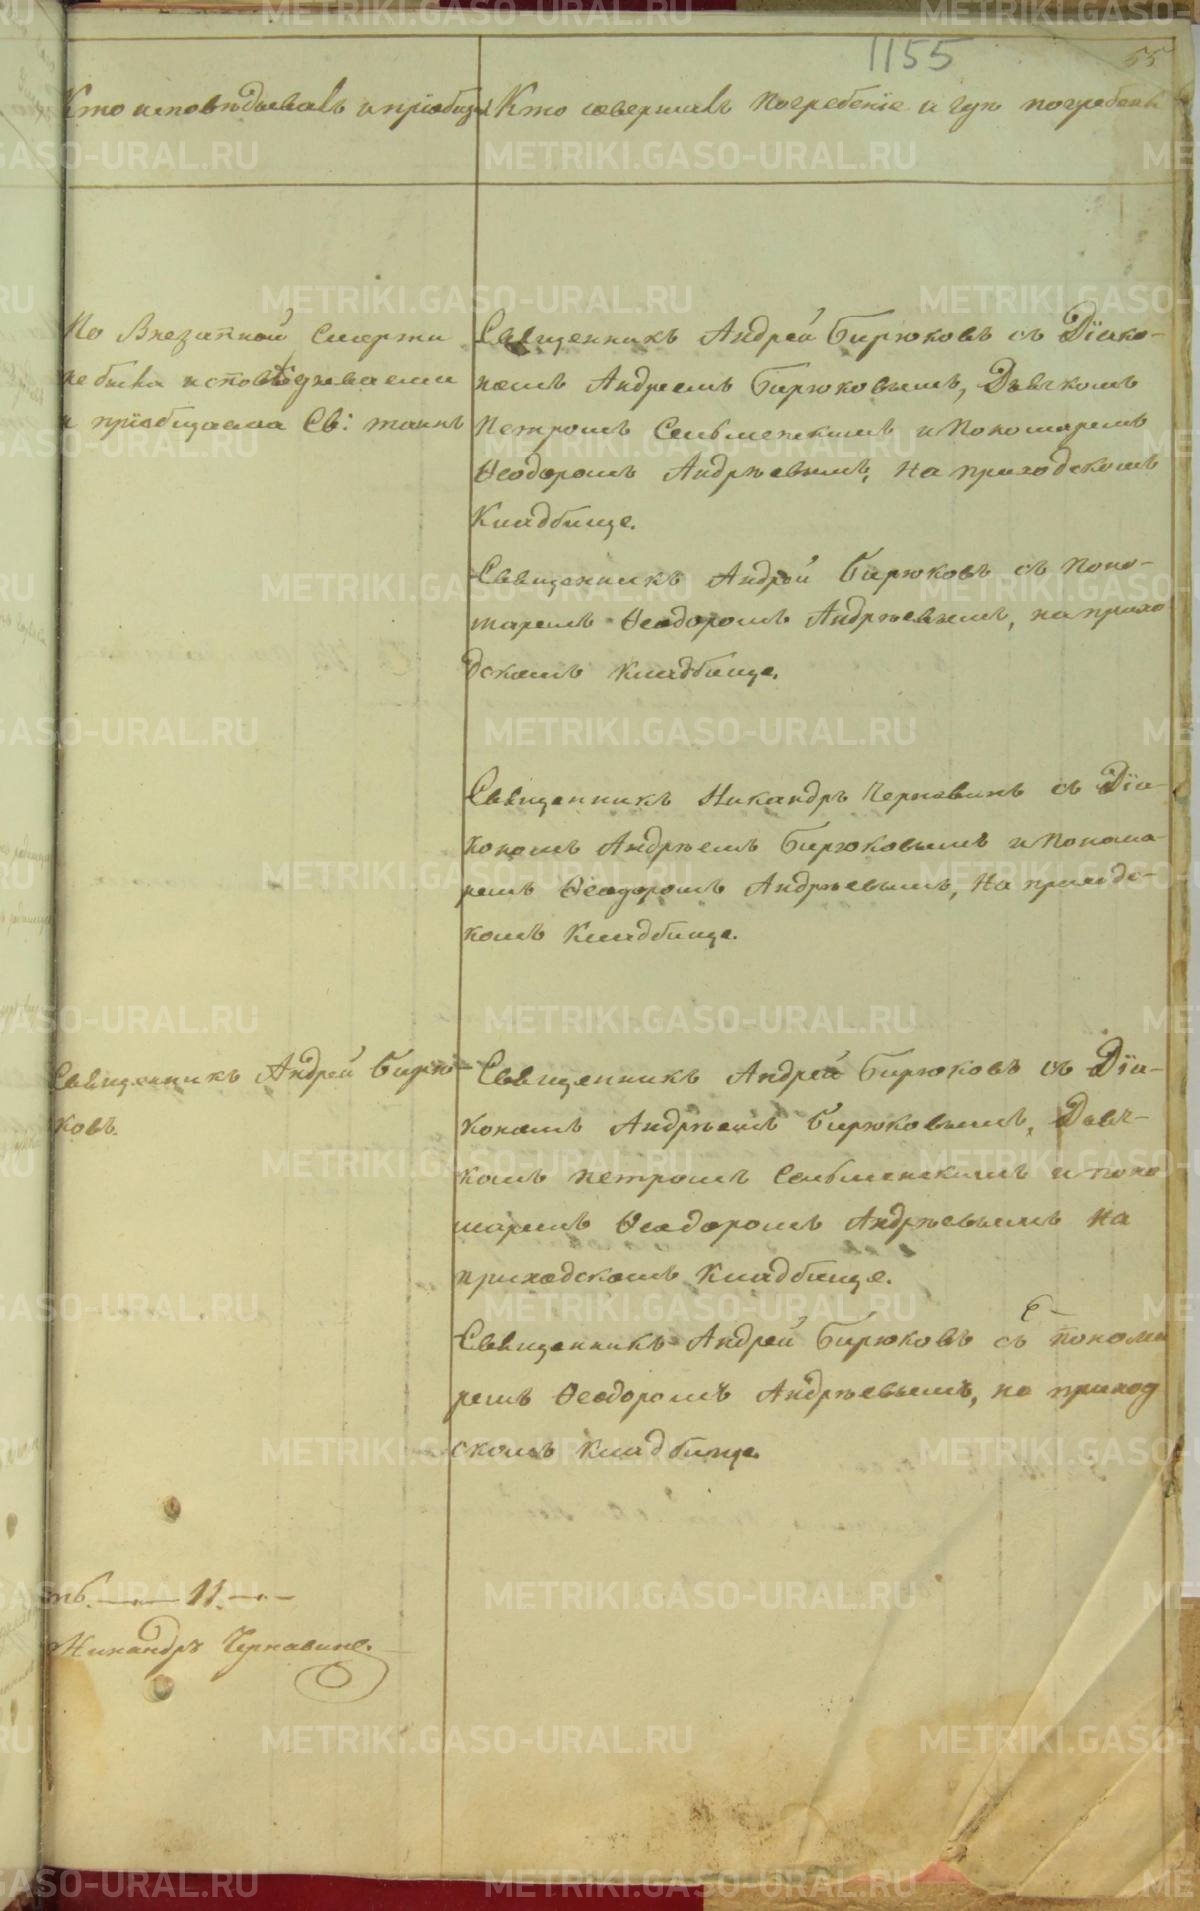 1155
55
Кто исповѣдывалъ и пріобщ. Кто совершалъ погребеніе и гдѣ погребены
По внезапной смерти
не была исповѣдуваема
и пріобщаема Св: таинъ
Священникъ Андрей Бирюковъ съ Діако-
номъ Андреемъ Бирюковымъ, Дьячкомъ
Петромъ Сельменскимъ и Пономаремъ
Ѳеодоромъ Андрѣевымъ, на приходскомъ
Кладбище.
Священникъ Андрей Бирюковъ съ Поно-
маремъ Ѳеодоромъ Андрѣевымъ, на прихо
дскомъ Кладбище.
Священникъ Никандръ Чернавинъ съ Діа-
кономъ Андрѣемъ Бирюковымъ и Понома
ремъ Ѳеодоромъ Андрѣевымъ, на приходс-
комъ Кладбище.
Священникъ Андрей Бирю-
ковъ.
Священникъ Андрей Бирюковъ съ Діа-
кономъ Андрѣемъ Бирюковымъ, Дьяч-
комъ Петромъ Сельменскимъ и поно
маремъ Ѳеодоромъ Андрѣевымъ на
приходскомъ Кладбище.
Священникъ Андрей Бирюковъ съ понома
ремъ Ѳеодоромъ Андрѣевымъ, на приход
скомъ Кладбище.
11.
Никандръ Чернавинъ.
METRIKI.GASO-URAL.RU